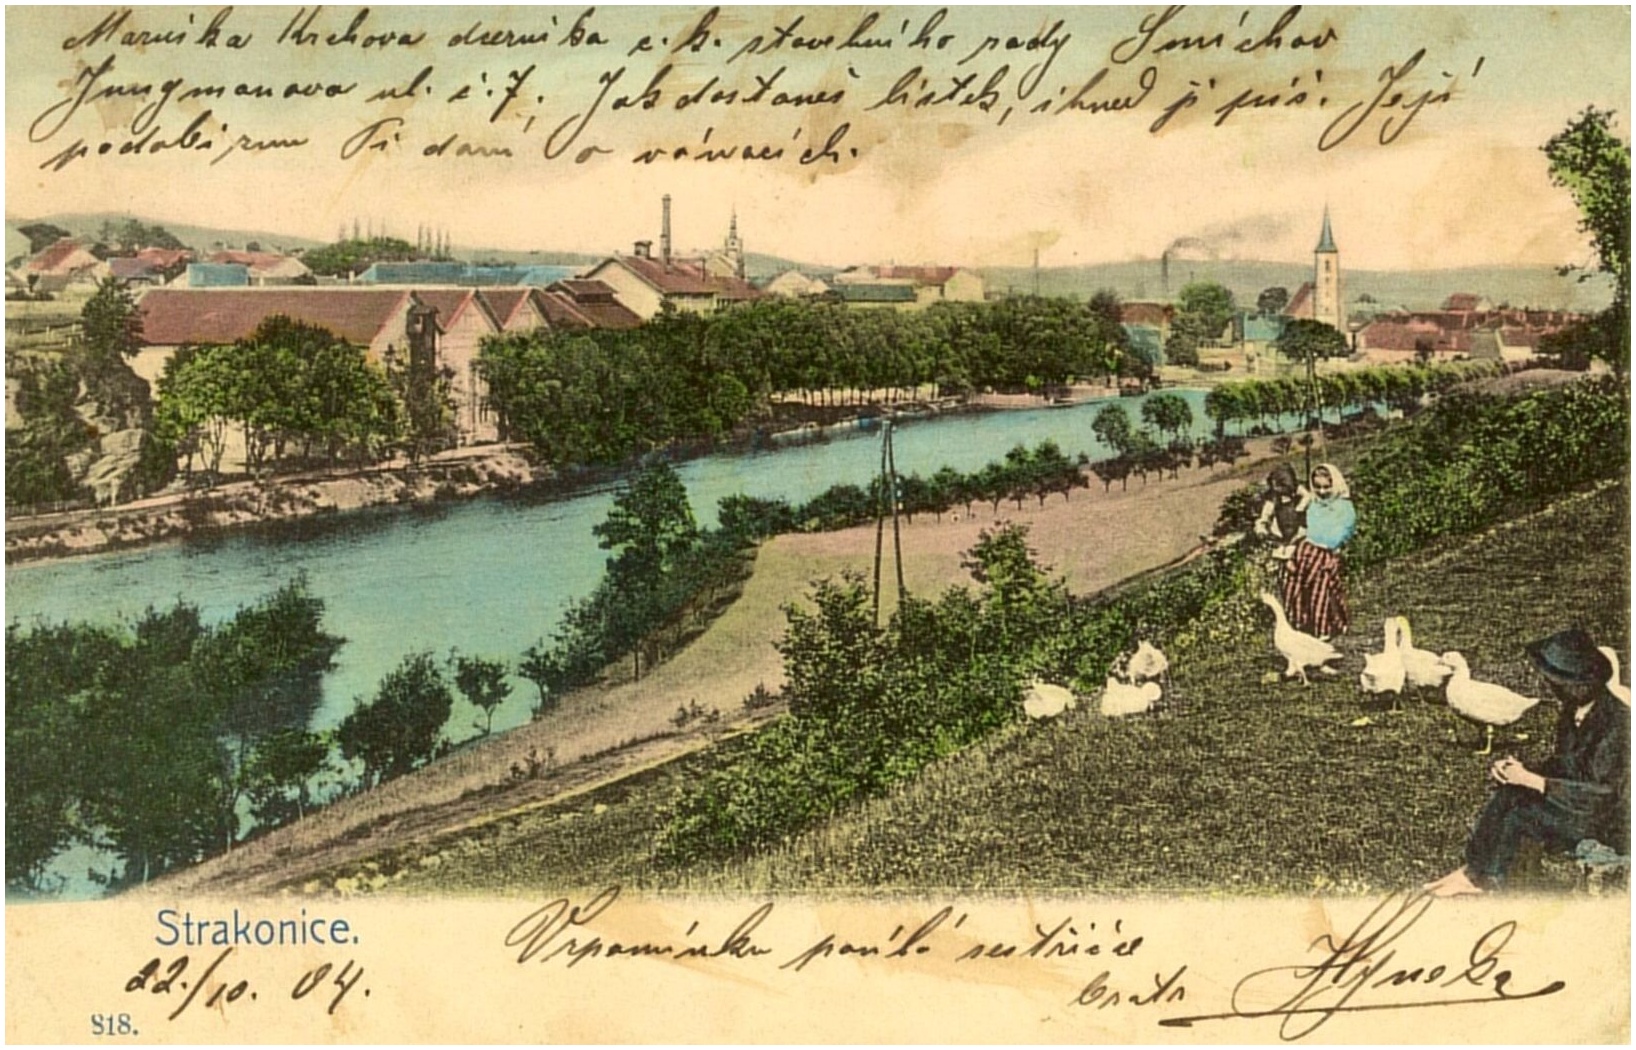 Maruška Krchova dceruška c. k. stavebního rady Smíchov
Jungmanova ul. č. 7. Jak dostaneš lístek, ihned ji piš. Její
podobiznu Ti dám o vánocích.
Strakonice.
22./10. 04.
818.
Vzpomínku posílá sestřičce
bratr Hynek